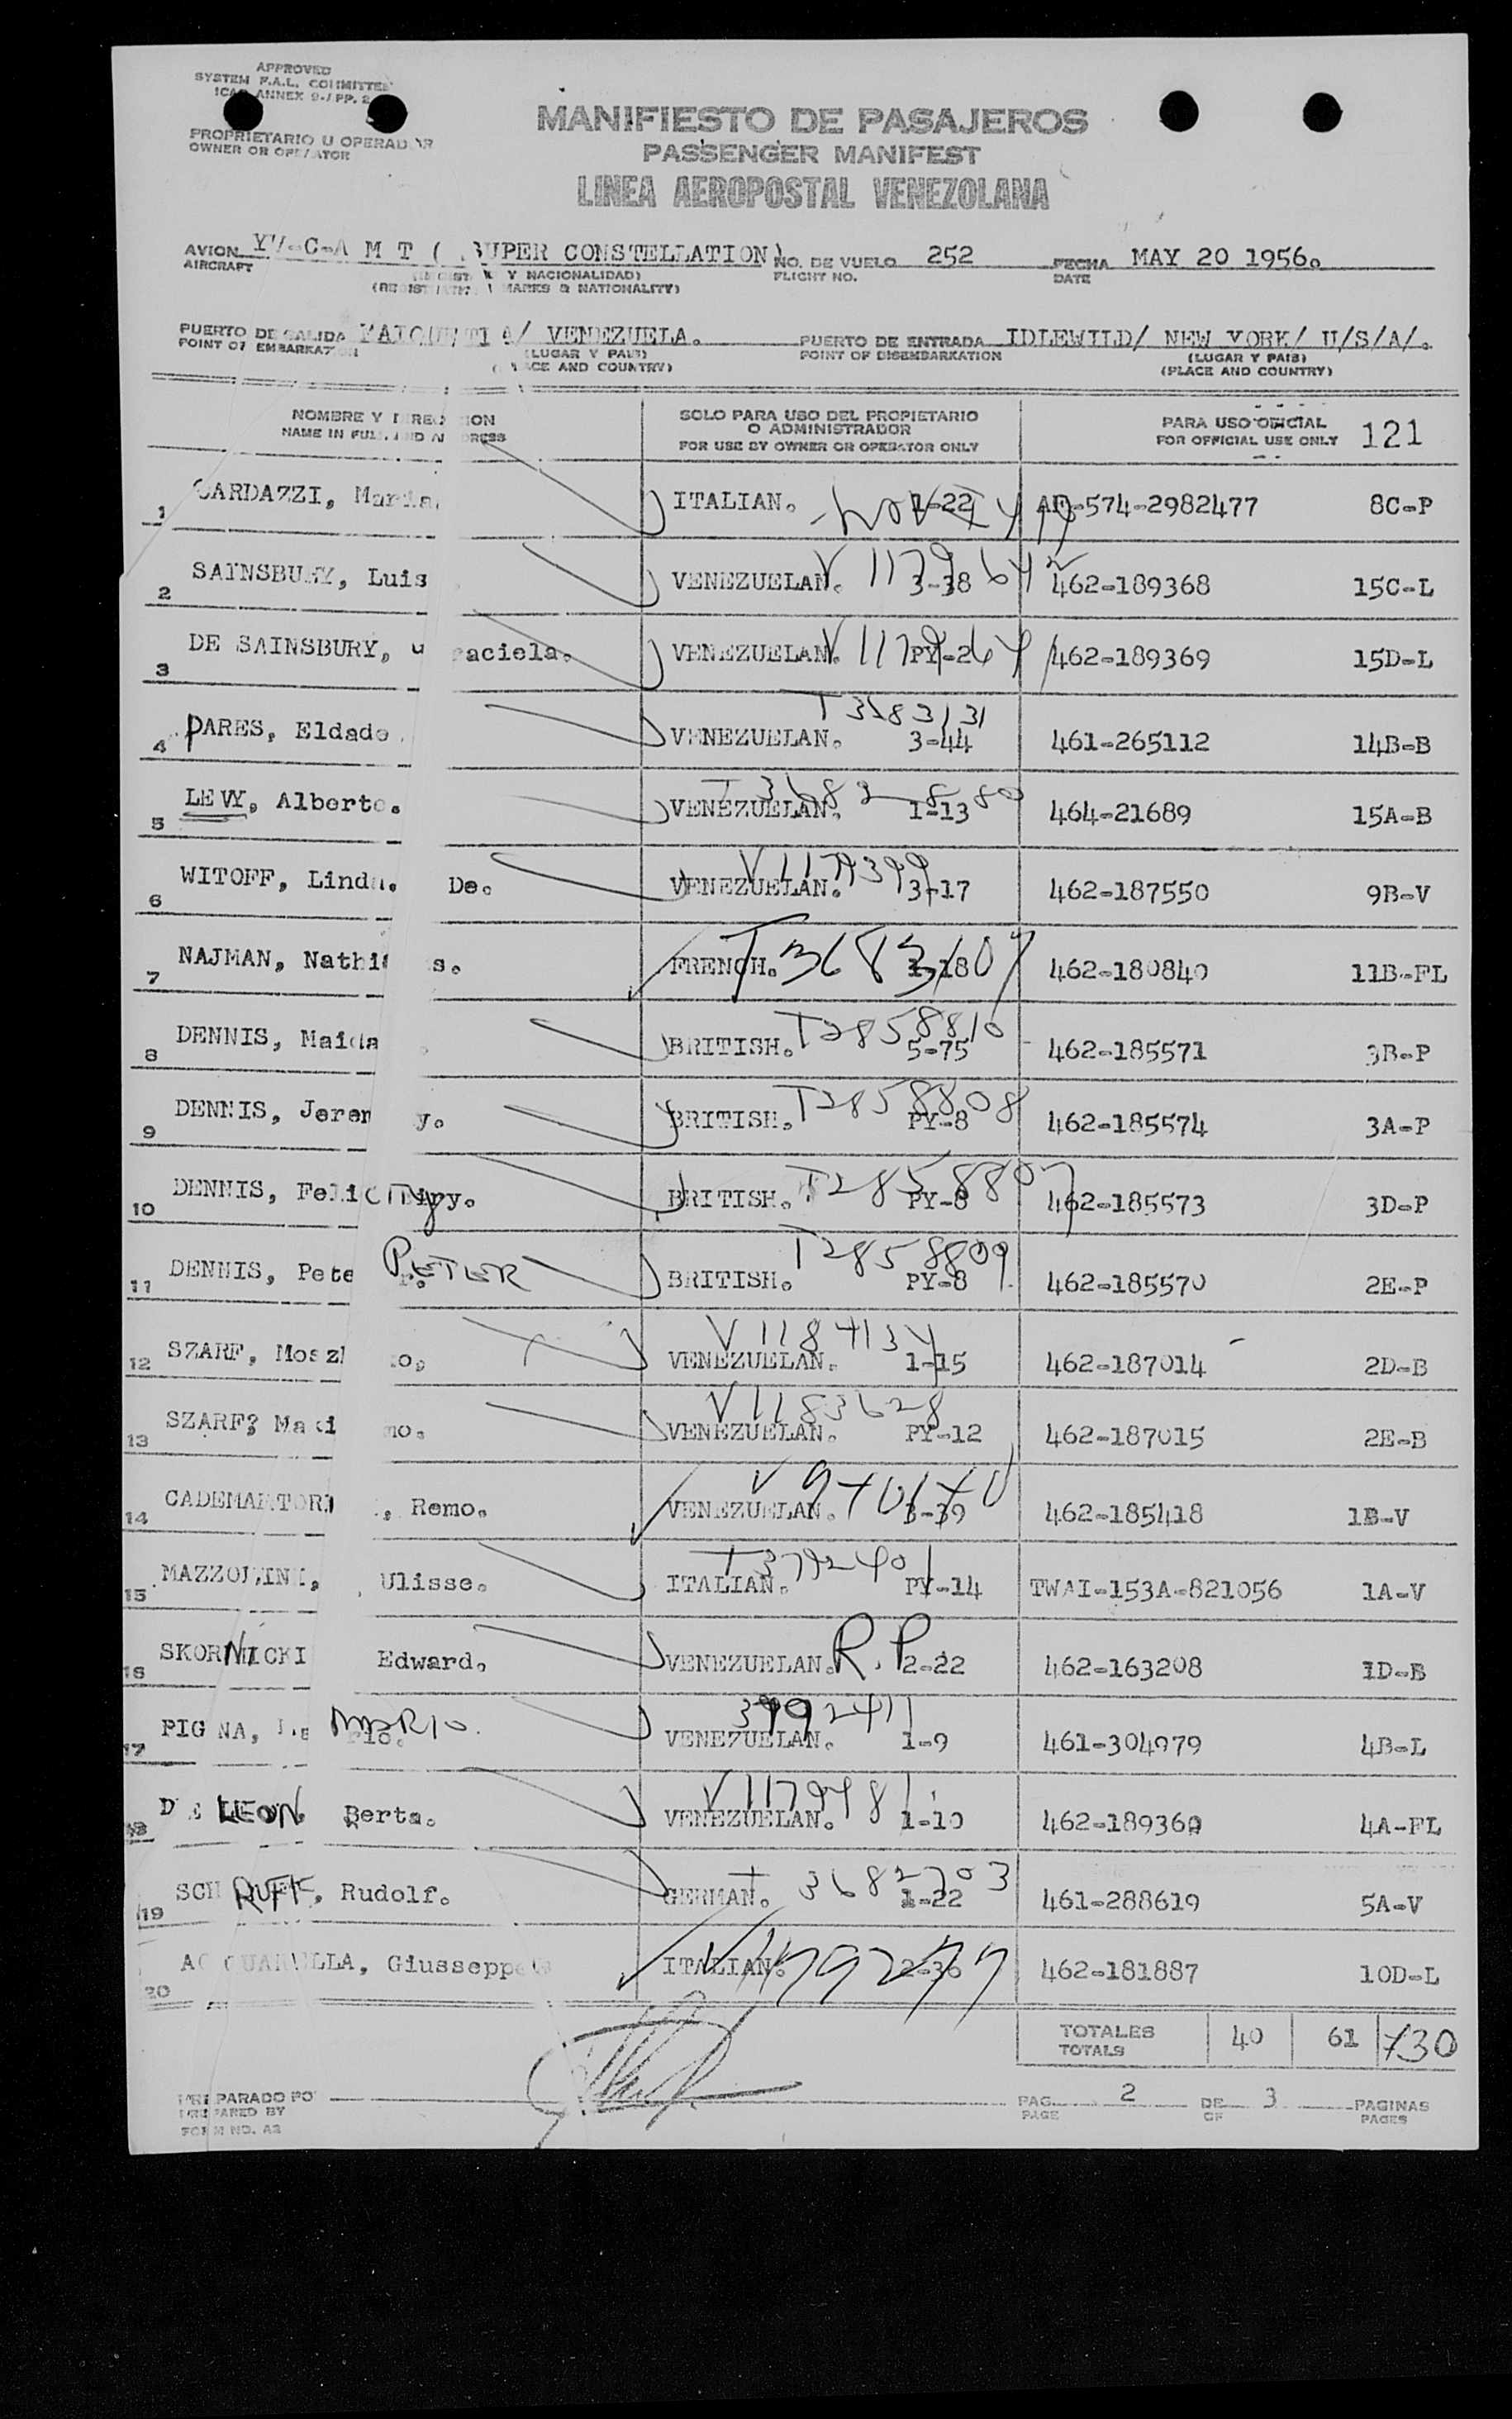 APPROVED
SYSTEM F.A.L. COMMITTEE
ICAO ANNEX 9-/PP. 2
PROPRIETARIO U OPERADOR
OWNER OR OPERATOR
MANIFIESTO DE PASAJEROS
PASSENGER MANIFEST
LINEA AEROPOSTAL VENEZOLANA
AVION YV-C-A M T ( SUPER CONSTELLATION) NO. DE VUELO 252 FECHA MAY 20 1956.
AIRCRAFT FLIGHT NO. DATE
Y NACIONALIDAD)
MARKS & NATIONALITY)
PUERTO DE SALIDA MAIQUETIA/ VENEZUELA. PUERTO DE ENTRADA IDLEWILD/ NEW YORK/ U/S/A/.
POINT OF EMBARKATION (LUGAR Y PAIS) POINT OF DISEMBARKATION (LUGAR Y PAIS)
(PLACE AND COUNTRY) (PLACE AND COUNTRY)
NOMBRE Y DIRECCION SOLO PARA USO DEL PROPIETARIO O ADMINISTRADOR PARA USO OFICIAL 121
NAME IN FULL AND ADDRESS FOR USE BY OWNER OR OPERATOR ONLY FOR OFFICIAL USE ONLY
1 CARDAZZI, Maria. ITALIAN. 1-22 574-2982477 8C-P
2 SAINSBURY, Luis VENEZUELAN. V 1179642 3-38 462-189368 15C-L
3 DE SAINSBURY, raciela. VENEZUELAN. PY-2 462-189369 15D-L
4 PARES, Eldado VENEZUELAN. T3683131 3-44 461-265112 14B-B
5 LEVY, Alberto. VENEZUELAN. 1-13 464-21689 15A-B
6 WITOFF, Linda. De. VENEZUELAN. V1179399 3-17 462-187550 9B-V
7 NAJMAN, Nathi s. FRENCH. T3683107 1-18 462-180840 11B-FL
8 DENNIS, Maida BRITISH. T2858810 5-75 462-185571 3B-P
9 DENNIS, Jerem y. BRITISH. T2858808 PY-8 462-185574 3A-P
10 DENNIS, FeliCITy y. BRITISH. T2858807 PY-8 462-185573 3D-P
11 DENNIS, Pete r. PETER BRITISH. T2858809 PY-8 462-185570 2E-P
12 SZARF, Moszk o, VENEZUELAN. V1184134 1-15 462-187014 2D-B
13 SZARF? Maxi mo. VENEZUELAN. V1183628 PY-12 462-187015 2E-B
14 CADEMARTORI, Remo. VENEZUELAN. 3-39 462-185418 1B-V
15 MAZZOLINI, Ulisse. ITALIAN. T3792401 PY-14 TWAI-153A-821056 1A-V
16 SKORNICKI Edward. VENEZUELAN. R.P. 2-22 462-163208 1D-B
17 PIG NA, MARIO. VENEZUELAN. 3792411 1-9 461-304979 4B-L
18 DE LEON Berta. VENEZUELAN. V1179481 1-10 462-189360 4A-FL
19 SCH RUFF, Rudolf. GERMAN. T 3682703 1-22 461-288619 5A-V
20 ACQUARELLA, Giusseppe ITALIAN. 2-36 462-181887 10D-L
TOTALES 40 61 730
TOTALS
PREPARADO PO PAG. 2 DE 3 PAGINAS
PREPARED BY PAGE OF PAGES
FORM NO. A2